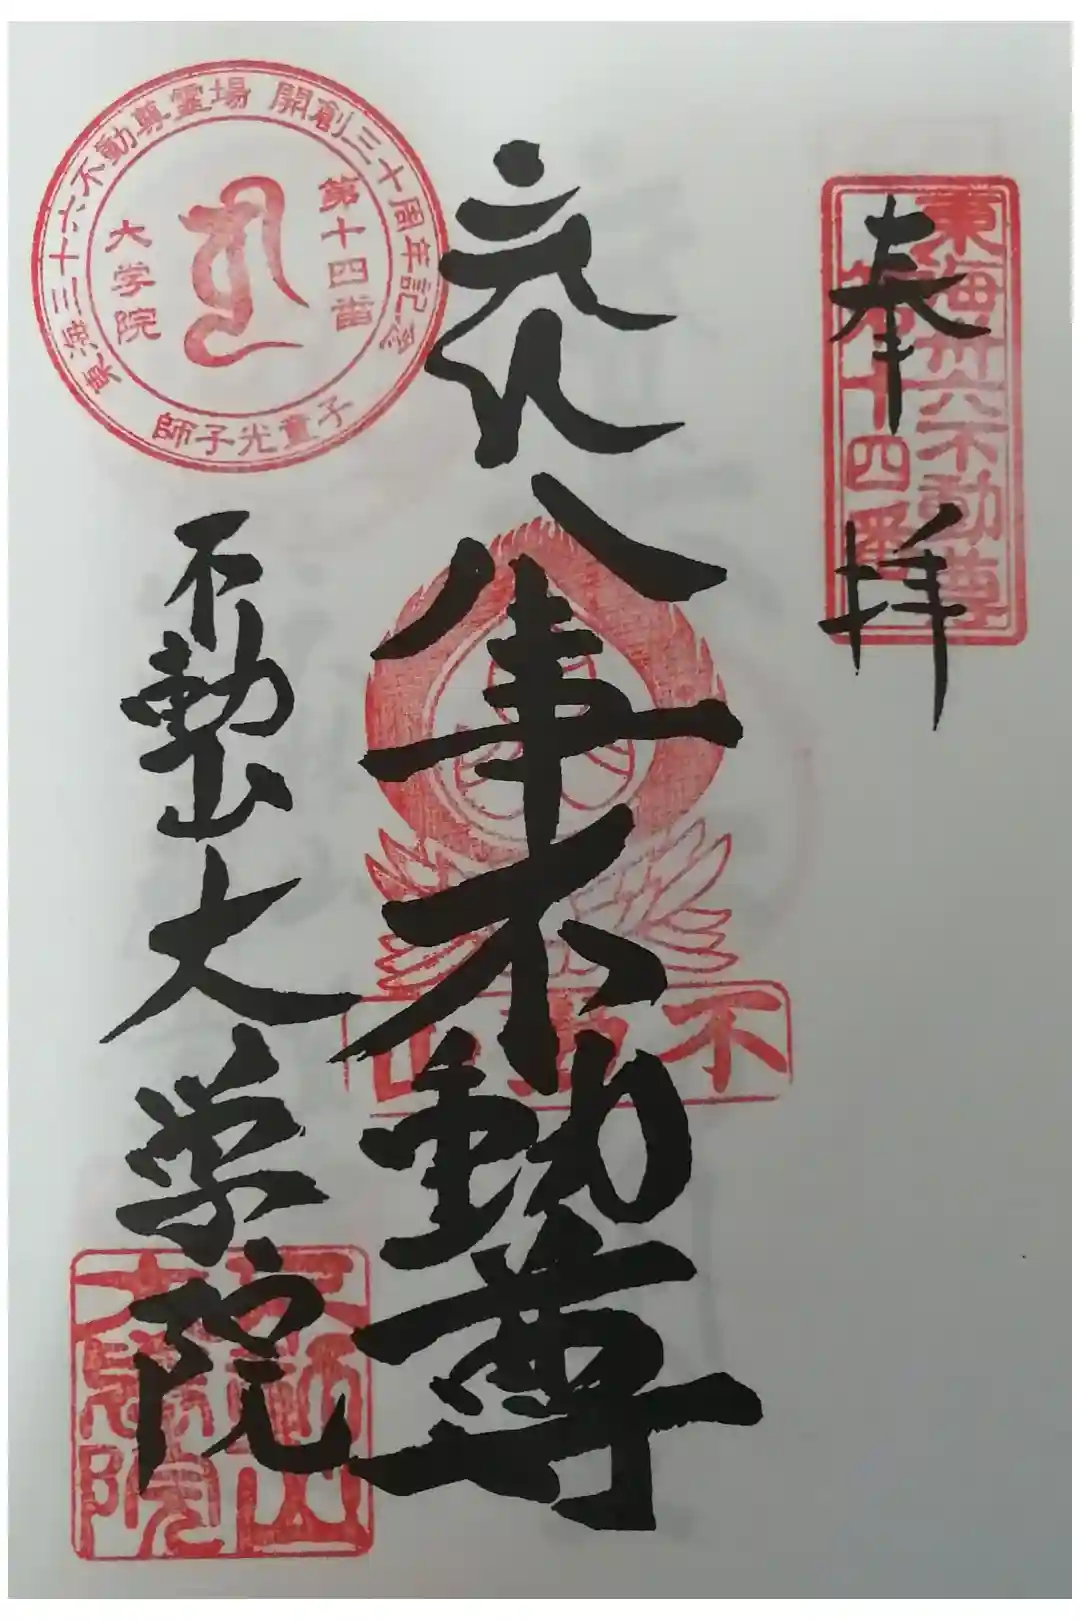 東海卅六不動尊
第十四番
奉拝
八事不動尊
不動山
東海三十六不動尊霊場 開創三十周年記念
第十四番
大学院
師子光童子
不動山大学院
不動山
大學院